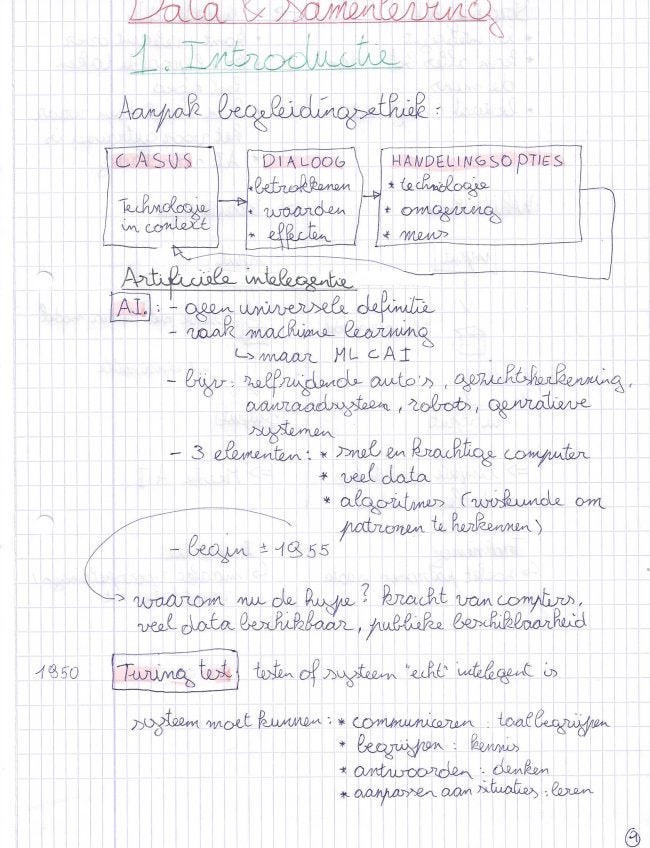 Data & Samenleving
1. Introductie
Aanpak begeleidingsethiek:
CASUS
Technologie
in context
DIALOOG
* betrokkenen
* waarden
* effecten
HANDELINGSOPTIES
* technologie
* omgeving
* mens
Artificiële intelegentie
A.I.: - geen universele definitie
- vaak machine learning
↳ maar ML ⊂ AI
- bijv: zelfrijdende auto's, gezichtsherkenning,
aanraadsysteem, robots, genratieve
systemen
- 3 elementen: * snel en krachtige computer
* veel data
* algoritmes (wiskunde om
patronen te herkennen)
- begin ± 1955
waarom nu de hype? kracht van compters,
veel data beshikbaar, publieke beschikbaarheid
1950 Turing test: testen of systeem "echt" intelegent is
systeem moet kunnen: * communiceren : taalbegrijpen
* begrijpen : kennis
* antwoorden : denken
* aanpassen aan situaties : leren